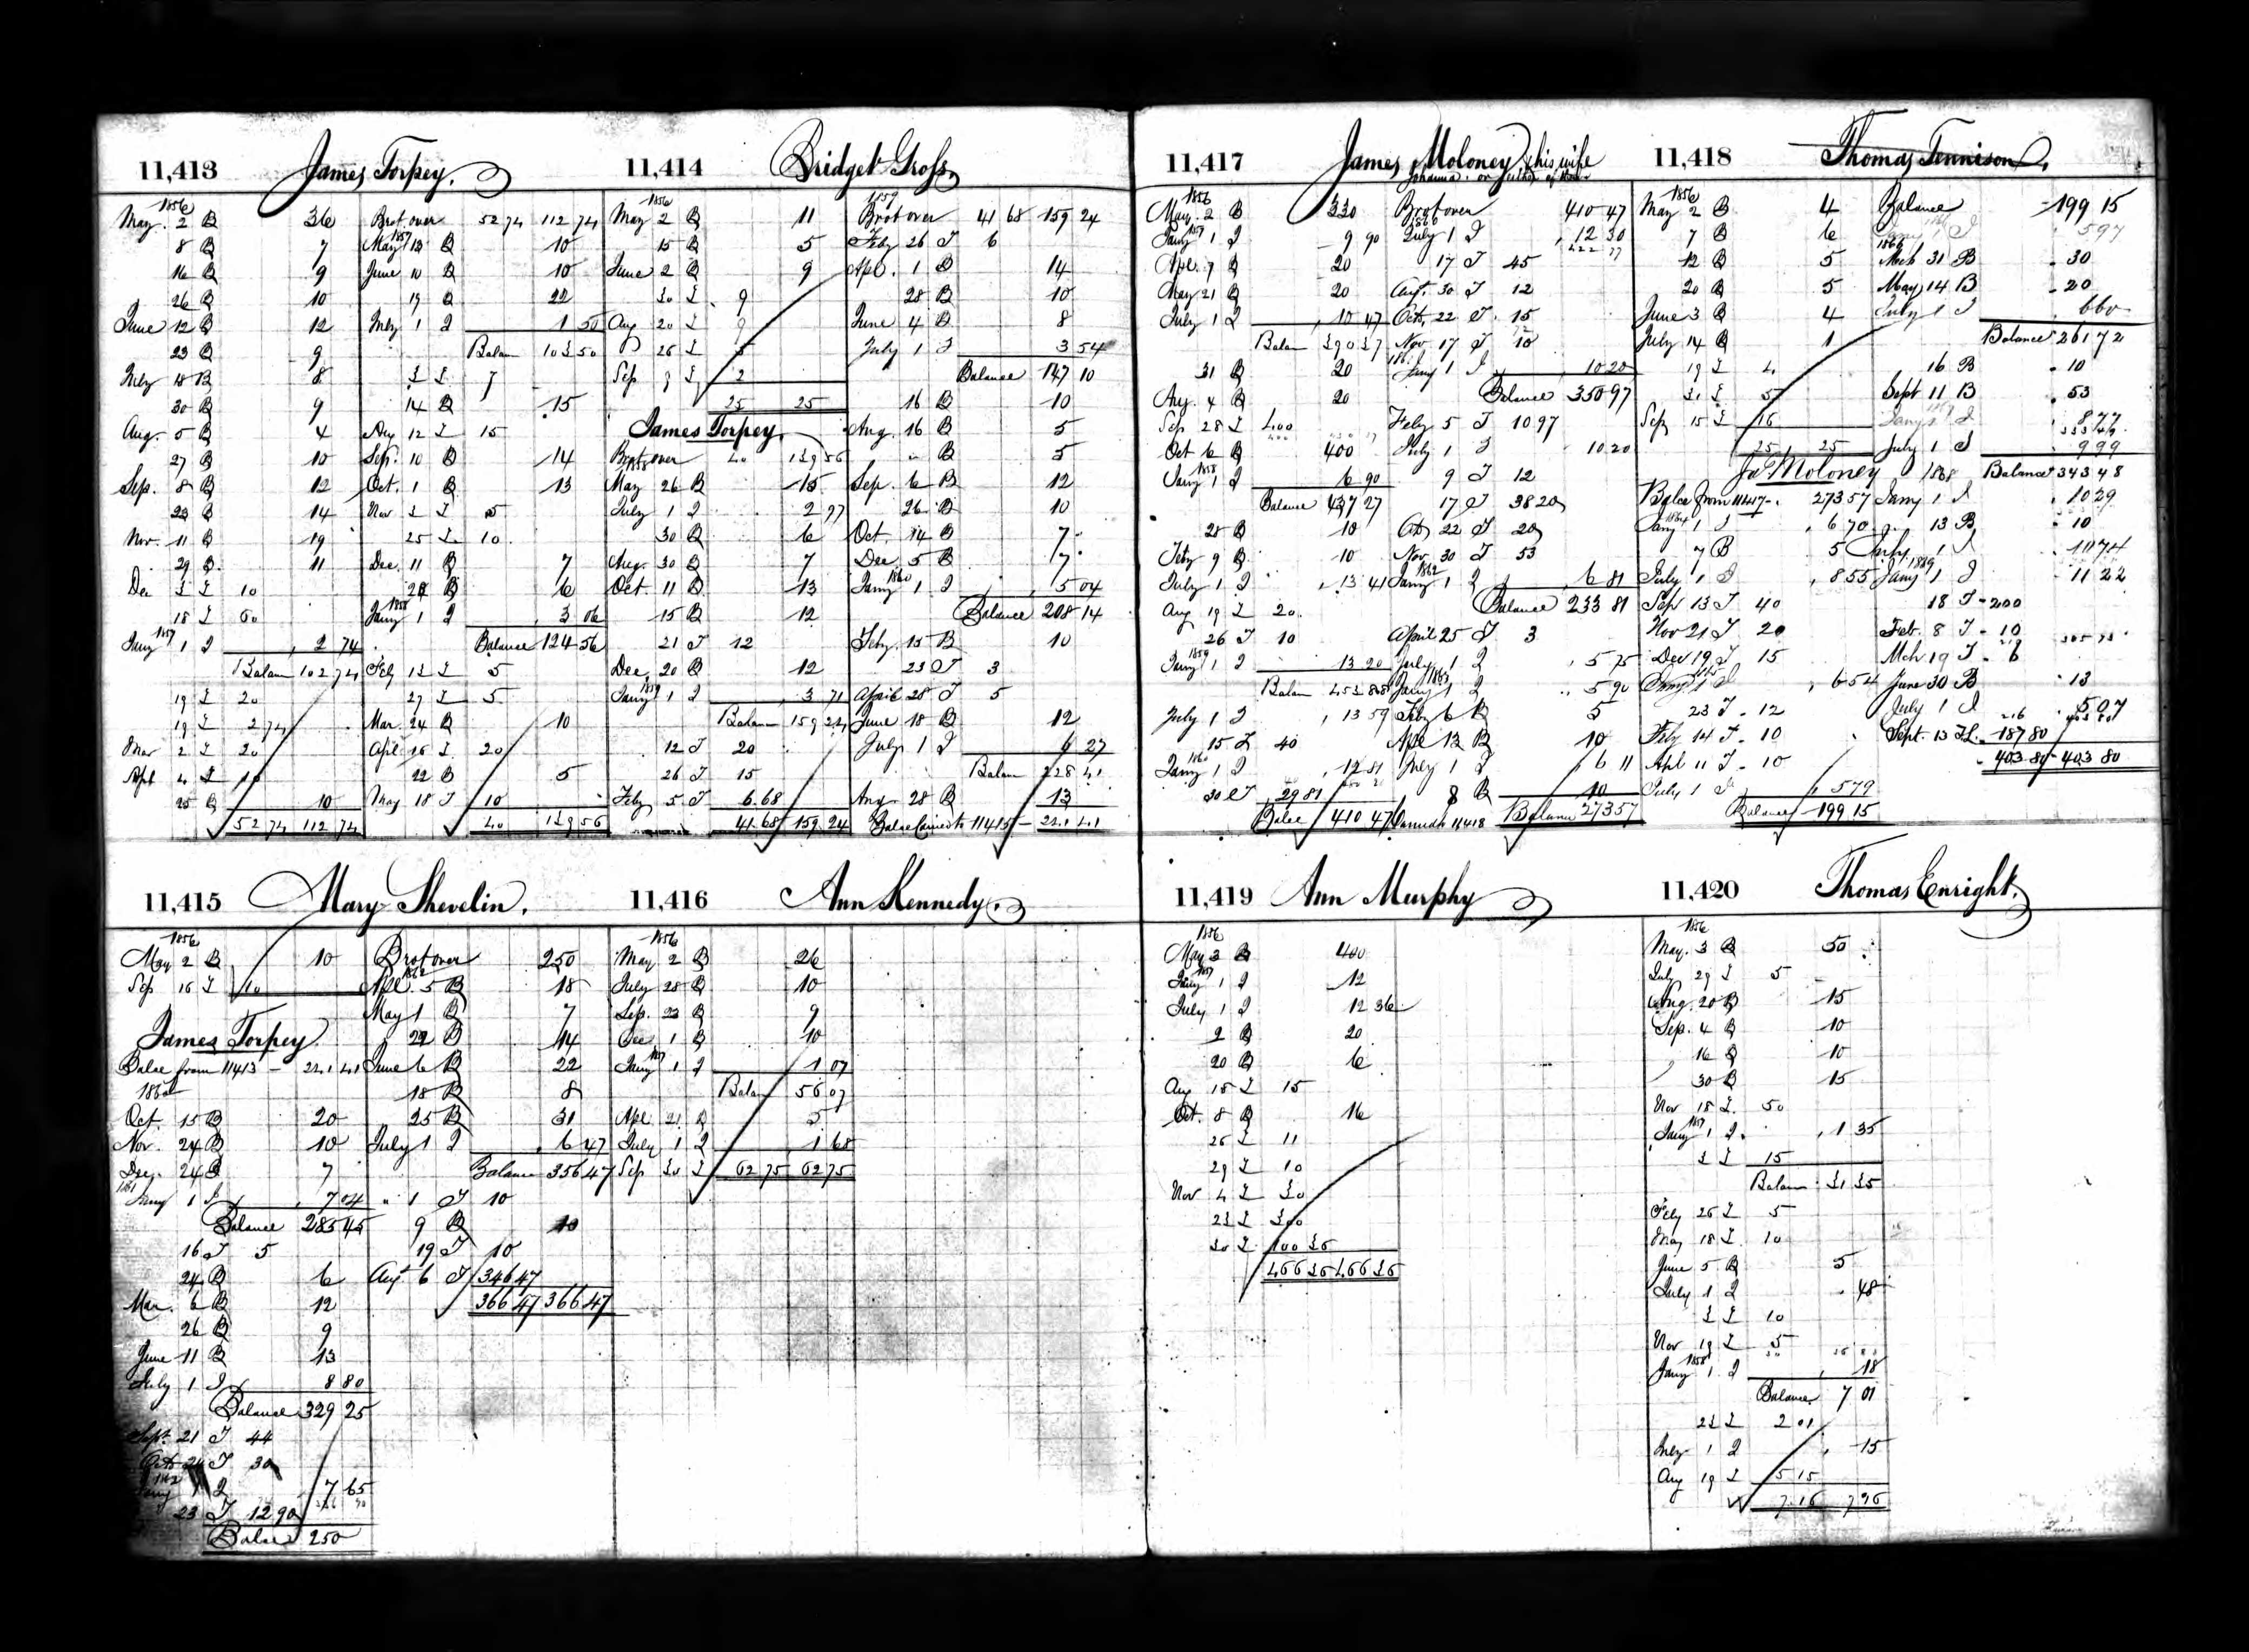 11,413 James Torpey.
1856
May 2 B 36
8 B 7
16 B 9
26 B 10
June 12 B 12
23 B 9
July 18 B 8
30 B 9
Aug. 5 B 4
27 B 10
Sep. 8 B 12
23 B 14
Nov. 11 B 19
29 B 11
Dec 10
18 50
1857
Jany 1 2 74
Balan 102 74
19 20
19 2 74
Mar 2 20
Apl 4 10
25 B 10
52 74 112 74
Brot over 52 74 112 74
1857
May 13 B 10
June 10 B 10
19 B 22
July 1 1 50
Balan 103 50
7
14 B 15
Aug 12 15
Sep. 10 B 14
Oct. 1 B 13
Nov 5
25 10
Dec. 11 B 7
B 6
1858
Jany 1 3 06
Balance 124 56
Feby 5
27 5
Mar. 24 B 10
April 20
22 B 5
May 18 10
40 139 56
11,414 Bridget Gross
1856
May 2 B 11
15 B 5
June 2 B 9
30 9
Aug 20 9
26 5
Sep 9 2
25 25
James Torpey.
Brot over 40 139 56
1858
May 26 B 15
July 1 2 97
30 B 6
Aug. 30 B 7
Oct. 11 B 13
15 B 12
21 12
Dec. 20 B 12
1859
Jany 1 3 71
Balan 159 24
12 20
26 15
Feby 5 6.68
41.68 159 24
1859
Brot over 41 68 159 24
Feby 26 6
Apl. 1 B 14
28 B 10
June 4 B 8
July 1 3 54
Balance 147 10
16 B 10
Aug. 16 B 5
" B 5
Sep. 6 B 12
26 B 10
Oct. 14 B 7
Dec. 5 B 7
1860
Jany 1 5 04
Balance 208 14
Feby. 15 B 10
23 3
April 28 5
June 18 B 12
July 1 6 27
Balan 228 41
Aug 28 B 13
11415 241 41
11,417 James Moloney & his wife
Johanna. or either of them
1856
May. 2 B 330
1857
Jany 1 9 90
Apl. 7 B 20
May 21 B 20
July 1 10 47
Balan 390 37
31 B 20
Aug. 4 B 20
Sep 28 400
Oct 6 B 400
1858
Jany 1 6 90
Balance 437 27
28 B 10
Feby 9 B 10
July 1 13 41
Aug 19 20
26 10
1859
Jany 1 13 20
Balan 453 88
July 1 13 59
15 40
1860
Jany 1 12 81
30 29 81
Balce 410 47
Brot over 410 47
1860
July 1 12 30
422 77
17 45
Augt. 30 12
Oct. 22 15
Nov 17 10
1861
Jany 1 10 20
Balance 350 97
Feby 5 10 97
July 1 10 20
9 12
17 38 20
Oct 22 20
Nov 30 53
1862
Jany 1 6 81
Balance 233 81
April 25 3
July 1 5 75
1863
Jany 1 5 90
Feby 6 B 5
Apl 13 B 10
July 1 6 11
8 B 10
11418 Balance 273 57
11,418 Thomas Tennison.
1856
May 2 B 4
7 B 6
12 B 5
20 B 5
June 3 B 4
July 14 B 1
19 4
31 5
Sep 15 16
25 25
Js Moloney
Balce from 11417 273 57
1864
Jany 1 6 70
7 B 5
July 1 8 55
Sept 13 40
Nov 21 20
Dec 19 15
1865
Jany 1 6 54
23 12
Feby 14 10
Apl 11 10
July 1 5 79
Balance 199 15
Balance 199 15
Jany 1 5 97
1866
Mch 31 B 30
May 14 B 20
July 1 6 60
Balance 261 72
16 B 10
Sept 11 B 53
Jany 1 8 77
333 49
July 1 9 99
1868 Balance 343 48
Jany 1 10 29
13 B 10
July 1 10 74
1869
Jany 1 11 22
18 200
Feb. 8 10
Mch 19 6
June 30 B 13
July 1 5 07
216 403 80
Sept. 13 187 80
403 80 403 80
11,415 Mary Shevelin.
1856
May 2 B 10
Sep 16 10
James Torpey
Balce from 11413 241 41
1860
Oct. 15 B 20
Nov. 24 B 10
Dec. 24 B 7
1861
Jany 1 7 04
Balance 285 45
16 5
24 B 6
Mar. 6 B 12
26 B 9
June 11 B 13
July 1 8 80
Balance 329 25
Sept. 21 44
Oct 24 30
1862
Jany 1 7 65
23 12 90
Balce 250
Brot over 250
1862
Apl. 5 B 18
May 1 B 7
22 B 14
June 6 B 22
18 B 8
25 B 31
July 1 6 47
Balance 356 47
" 1 10
9 B 10
19 10
Augt 6 346 47
366 47 366 47
11,416 Ann Kennedy.
1856
May 2 B 26
July 28 B 10
Sep. 23 B 9
Dec 1 B 10
1857
Jany 1 1 07
Balan 56 07
Apl. 21 B 5
July 1 1 68
Sep 30 62 75 62 75
11,419 Ann Murphy
1856
May 3 B 400
1857
Jany 1 12
July 1 12 36
2 B 20
20 B 6
Aug 15 15
Oct. 8 B 16
26 11
29 10
Nov 4 30
23 300
30 100 36
466 36 466 36
11,420 Thomas Enright.
1856
May. 3 B 50
July 29 5
Aug. 20 B 15
Sep. 4 B 10
16 B 10
30 B 15
Nov 18 50
1857
Jany 1 1 35
15
Balan 31 35
Feby 26 5
May 18 10
June 5 B 5
July 1 48
10
Nov 19 5
1858
Jany 1 18
Balance 7 01
23 2 01
July 1 15
Aug 19 5 15
7.16 7 16